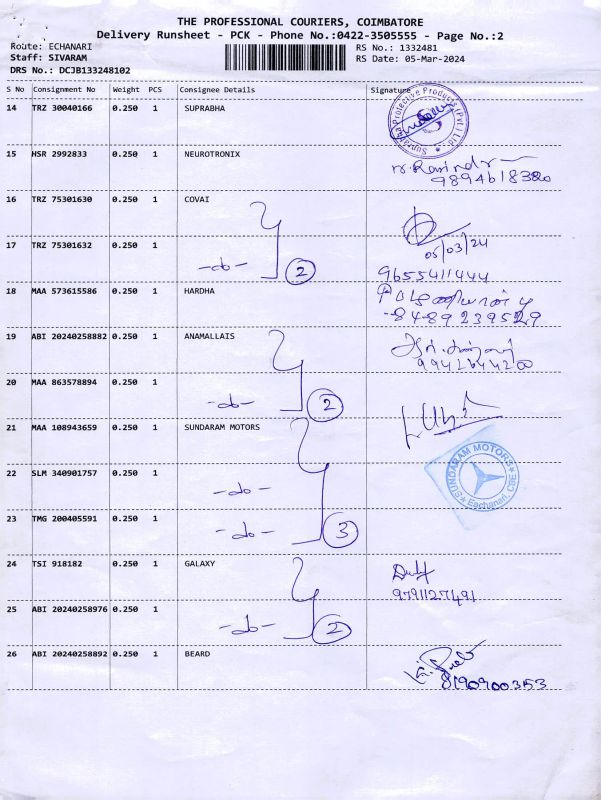 THE PROFESSIONAL COURIERS, COIMBATORE
Delivery Runsheet - PCK - Phone No.:0422-3505555 - Page No.:2
Route: ECHANARI
Staff: SIVARAM
DRS No.: DCJB133248102
RS No.: 1332481
RS Date: 05-Mar-2024
S No Consignment No Weight PCS Consignee Details Signature
14 TRZ 30040166 0.250 1 SUPRABHA
Suprabha Protective Products (Pvt.) Ltd.
15 HSR 2992833 0.250 1 NEUROTRONIX
9894618380
16 TRZ 75301630 0.250 1 COVAI
05/03/24
17 TRZ 75301632 0.250 1 -do- 2
9655411444
18 MAA 573615586 0.250 1 HARDHA
8489239529
19 ABI 20240258882 0.250 1 ANAMALLAIS
9942644200
20 MAA 863578894 0.250 1 -do- 2
21 MAA 108943659 0.250 1 SUNDARAM MOTORS
SUNDARAM MOTORS
Eachanari, CBE
22 SLM 340901757 0.250 1 -do-
23 TMG 200405591 0.250 1 -do- 3
24 TSI 918182 0.250 1 GALAXY
9791127491
25 ABI 20240258976 0.250 1 -do- 2
26 ABI 20240258892 0.250 1 BEARD
8190900353